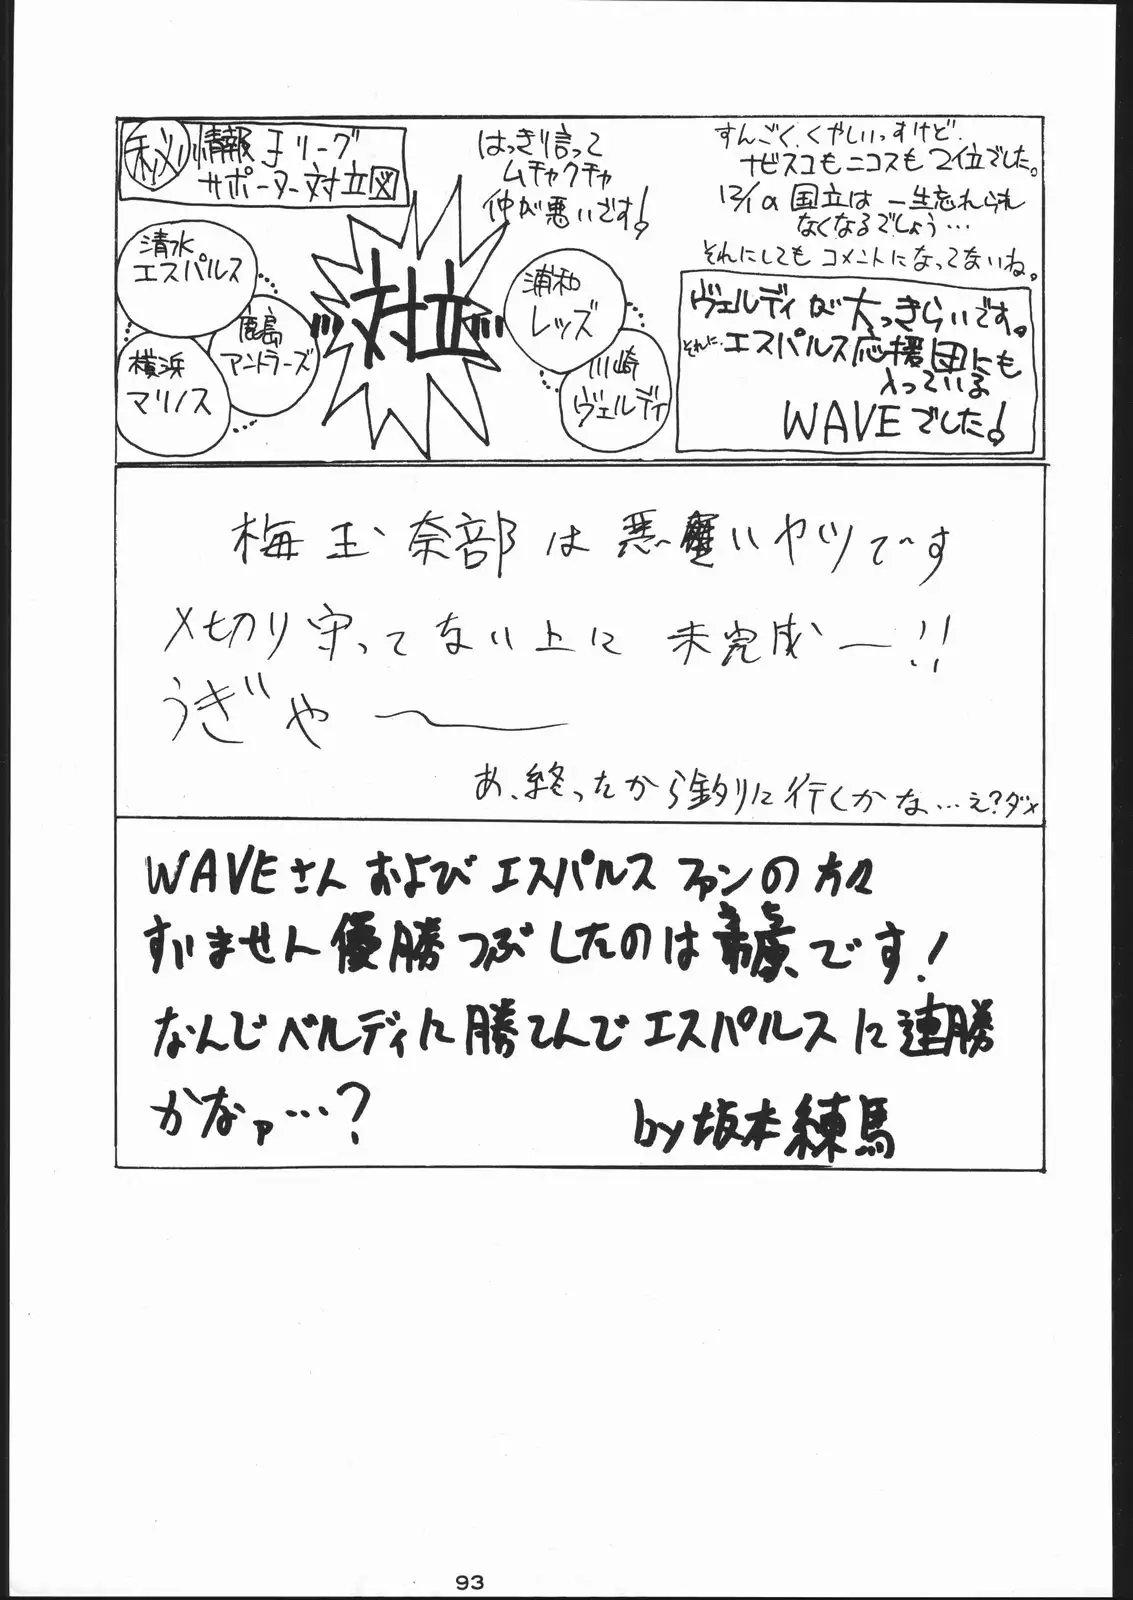 秘情報Jリーグ
サポーター対立図
はっきり言って
ムチャクチャ
仲が悪いです!
清水
エスパルス
鹿島
アントラーズ
横浜
マリノス
対立
浦和
レッズ
川崎
ヴェルディ
すんごく、くやしいっすけど、
ナビスコもニコスも2位でした。
国立は一生忘れられ
なくなるでしょう…
それにしてもコメントになってないね。
ヴェルディが大っきらいです。
それに、エスパルス応援団にも
入っている
WAVEでした!
梅玉奈部は悪魔いヤツで〜す
〆切り守ってない上に未完成ー!!
うぎ゛や〜
あ、終ったから釣りに行くかな…え?ダメ
WAVEさんおよびエスパルスファンの方々
すいません優勝つぶしたのは です!
なんでベルディに勝てんでエスパルスに連勝
かなァ…?
by坂本練馬
93